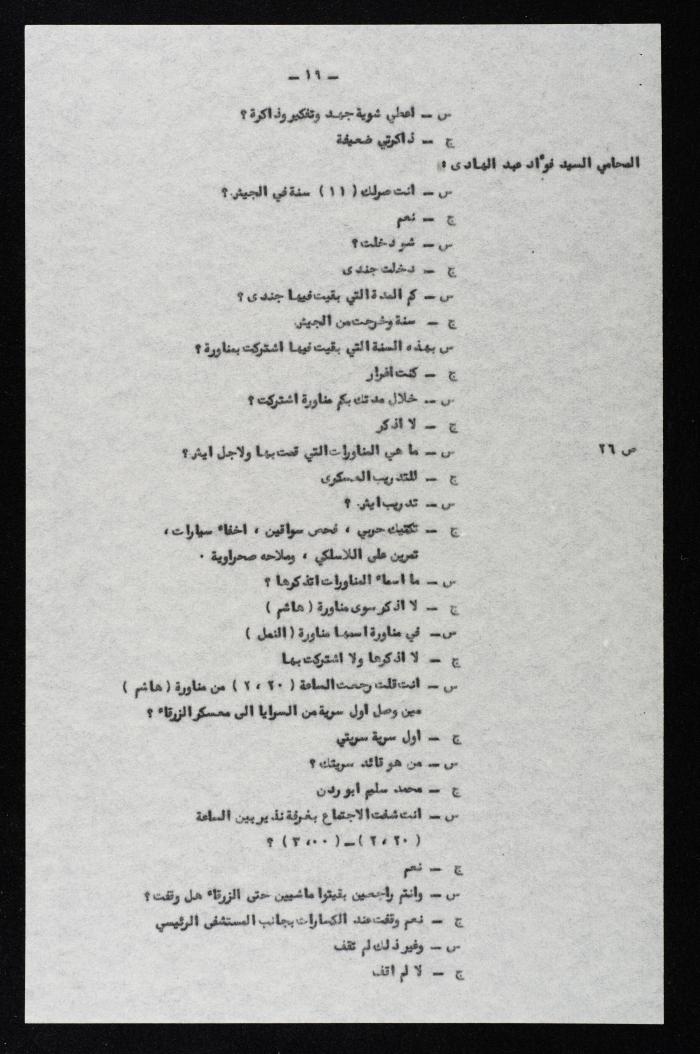 ـ ١٩ ـ
س ـ اعطي شوية جهد وتفكير وذاكرة ؟
ج ـ ذاكرتي ضعيفة
المحامي السيد فوءاد عبد الهادى :
س ـ انت صرلك ( ١١ ) سنة في الجيش ؟
ج ـ نعم
س ـ شو دخلت ؟
ج ـ دخلت جندى
س ـ كم المدة التي بقيت فيها جندى ؟
ج ـ سنة وخرجت من الجيش
س بهذه السنة التي بقيت فيها اشتركت بمناورة ؟
ج ـ كنت افرار
س ـ خلال مدتك بكم مناورة اشتركت ؟
ج ـ لا اذكر
س ـ ما هي المناورات التي قمت بها ولاجل ايش ؟
ص ٢٦
ج ـ للتدريب العسكرى
س ـ تدريب ايش ؟
ج ـ تكتيك حربي ، فحص سواقين ، اخفاء سيارات ،
تمرين على اللاسلكي ، وملاحه صحراوية ٠
س ـ ما اسماء المناورات اتذكرها ؟
ج ـ لا اذكر سوى مناورة ( هاشم )
س ـ في مناورة اسمها مناورة ( النمل )
ج ـ لا اذكرها ولا اشتركت بها
س ـ انت قلت رجعت الساعة ( ٢،٢٠ ) من مناورة ( هاشم )
مين وصل اول سرية من السرايا الى معسكر الزرقاء ؟
ج ـ اول سرية سريتي
س ـ من هو قائد سريتك ؟
ج ـ محمد سليم ابو ردن
س ـ انت شفت الاجتماع بغرفة نذير بين الساعة
( ٢،٢٠ ) ـ ( ٣،٠٠ ) ؟
ج ـ نعم
س ـ وانتم راجعين بقيتوا ماشيين حتى الزرقاء هل وقفت ؟
ج ـ نعم وقفت عند الكسارات بجانب المستشفى الرئيسي
س ـ وغير ذلك لم تقف
ج ـ لا لم اقف